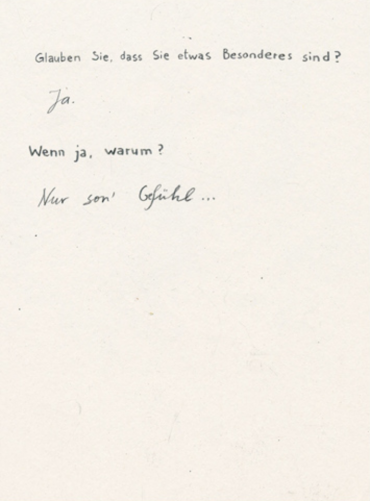 Glauben Sie, dass Sie etwas Besonderes sind?
Ja.
Wenn ja, warum?
Nur son' Gefühl...